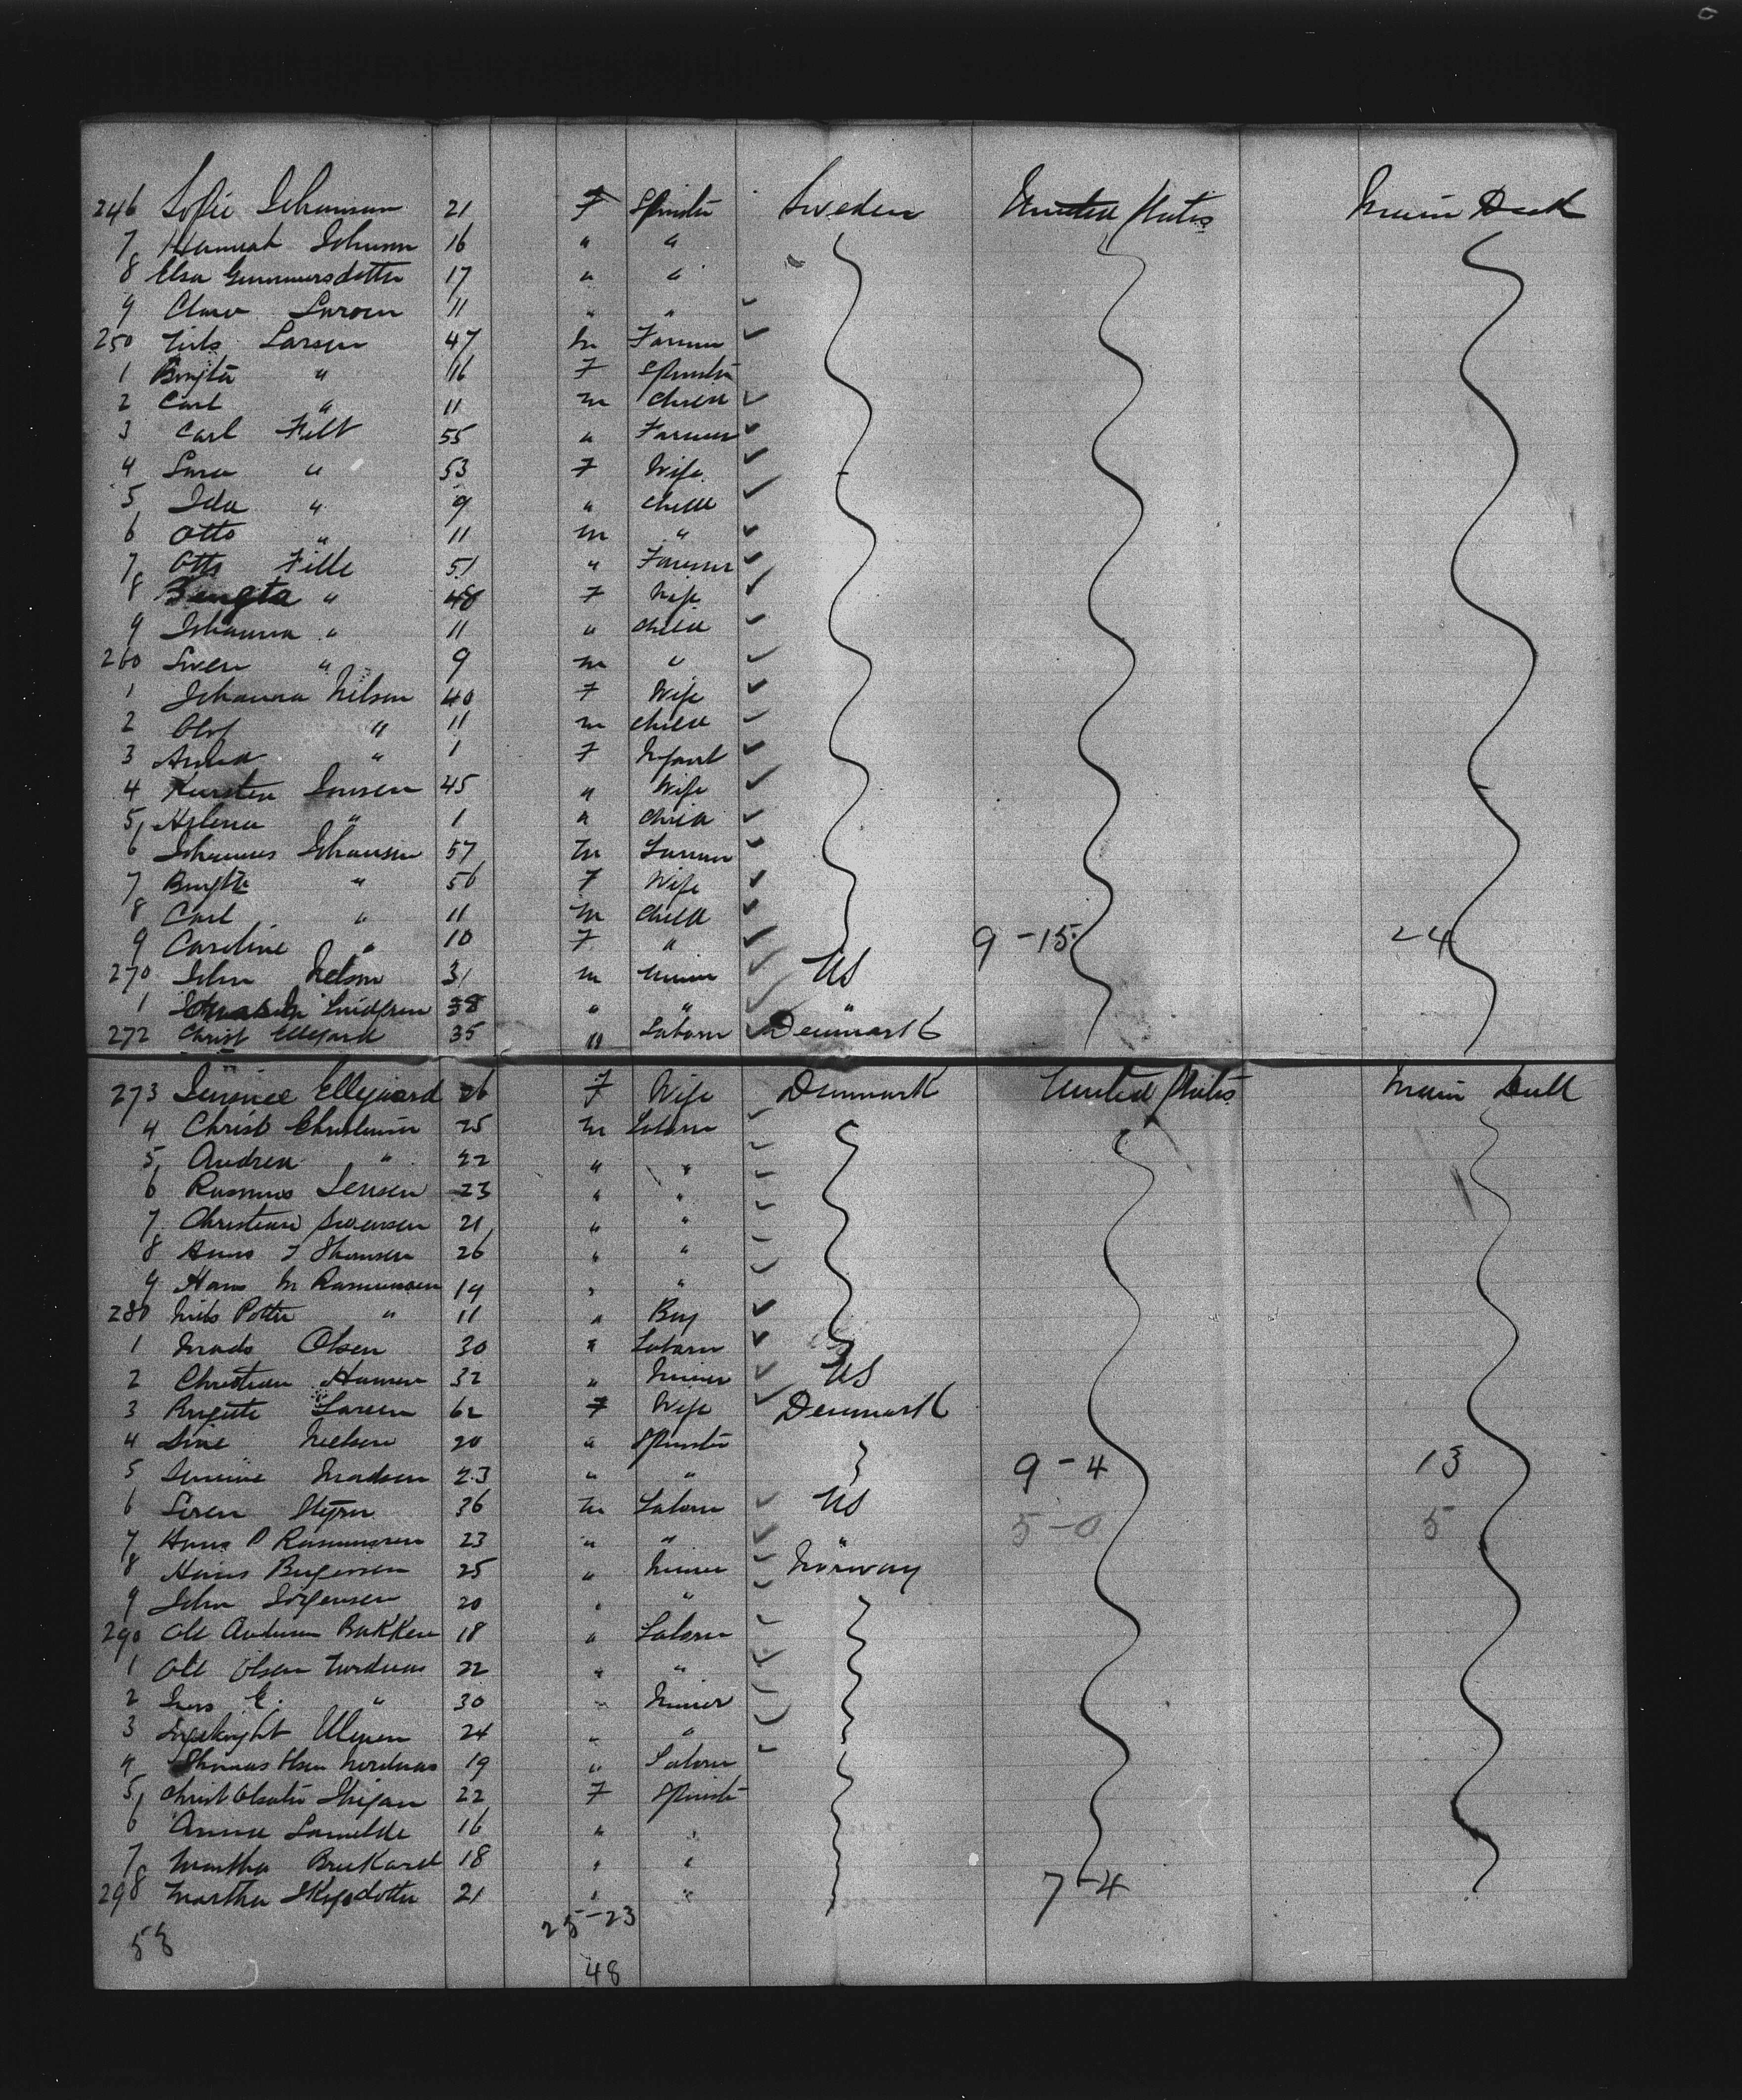 246 Sofie Johanson 21 F Spinster Sweden United States Main Deck
7 Hannah Johnson 16 " "
8 Elsa Gunnarsdotter 17 " "
9 Clara Larson 11 " "
250 Nils Larsen 47 m Farmer
1 Bengta " 16 F Spinster
2 Carl " 11 m Child
3 Carl Filt 55 " Farmer
4 Sara " 53 F Wife
5 Ida " 9 " Child
6 Otto " 11 m "
7 Otto Fille 51 " Farmer
8 Bengta " 48 F Wife
9 Johanna " 11 " Child
260 Sven " 9 m "
1 Johanna Nilson 40 F Wife
2 Olof " 11 m Child
3 Anna " 1 F Infant
4 Kersten Jonsen 45 " Wife
5 Helena " 1 " Child
6 Johannes Johansen 57 m Farmer
7 Bengta " 56 F Wife
8 Carl " 11 m Child
9 Caroline " 10 F " 9-15 24
270 John Nelson 31 m Miner US
1 Lindgren 38 " " "
272 Christ Ellegard 35 " Laborer Denmark
273 Ellegaard 26 F Wife Denmark United States Main Deck
4 Christ Christensen 25 m Laborer
5 Andrea " 22 " "
6 Rasmus Jensen 23 " "
7 Christian Swensen 21 " "
8 Hans J Thomsen 26 " "
9 Hans M Rasmussen 19 " "
280 Niels Petter " 11 " Boy
1 Mads Olsen 30 " Laborer
2 Christian Hansen 32 " Miner US
3 Birgitte Larsen 62 F Wife Denmark
4 Sine Nielsen 20 " Spinster
5 Madsen 23 " " 9-4 13
6 Soren 36 m Laborer US 5-0 5
7 Hans P Rasmussen 23 " " "
8 Hans Birgersen 25 " Miner Norway
9 John Jorgensen 20 " "
290 Ole Andersen Bakken 18 " Laborer
1 Ole Olsen Nordnas 22 " "
2 E. " 30 " Miner
3 24 " "
4 Thomas Olsen Nordnas 19 " Laborer
5 Christ 22 F Spinster
6 Anna 16 " "
7 Martha 18 " "
298 Martha 21 " " 7-4
25-23
58
48